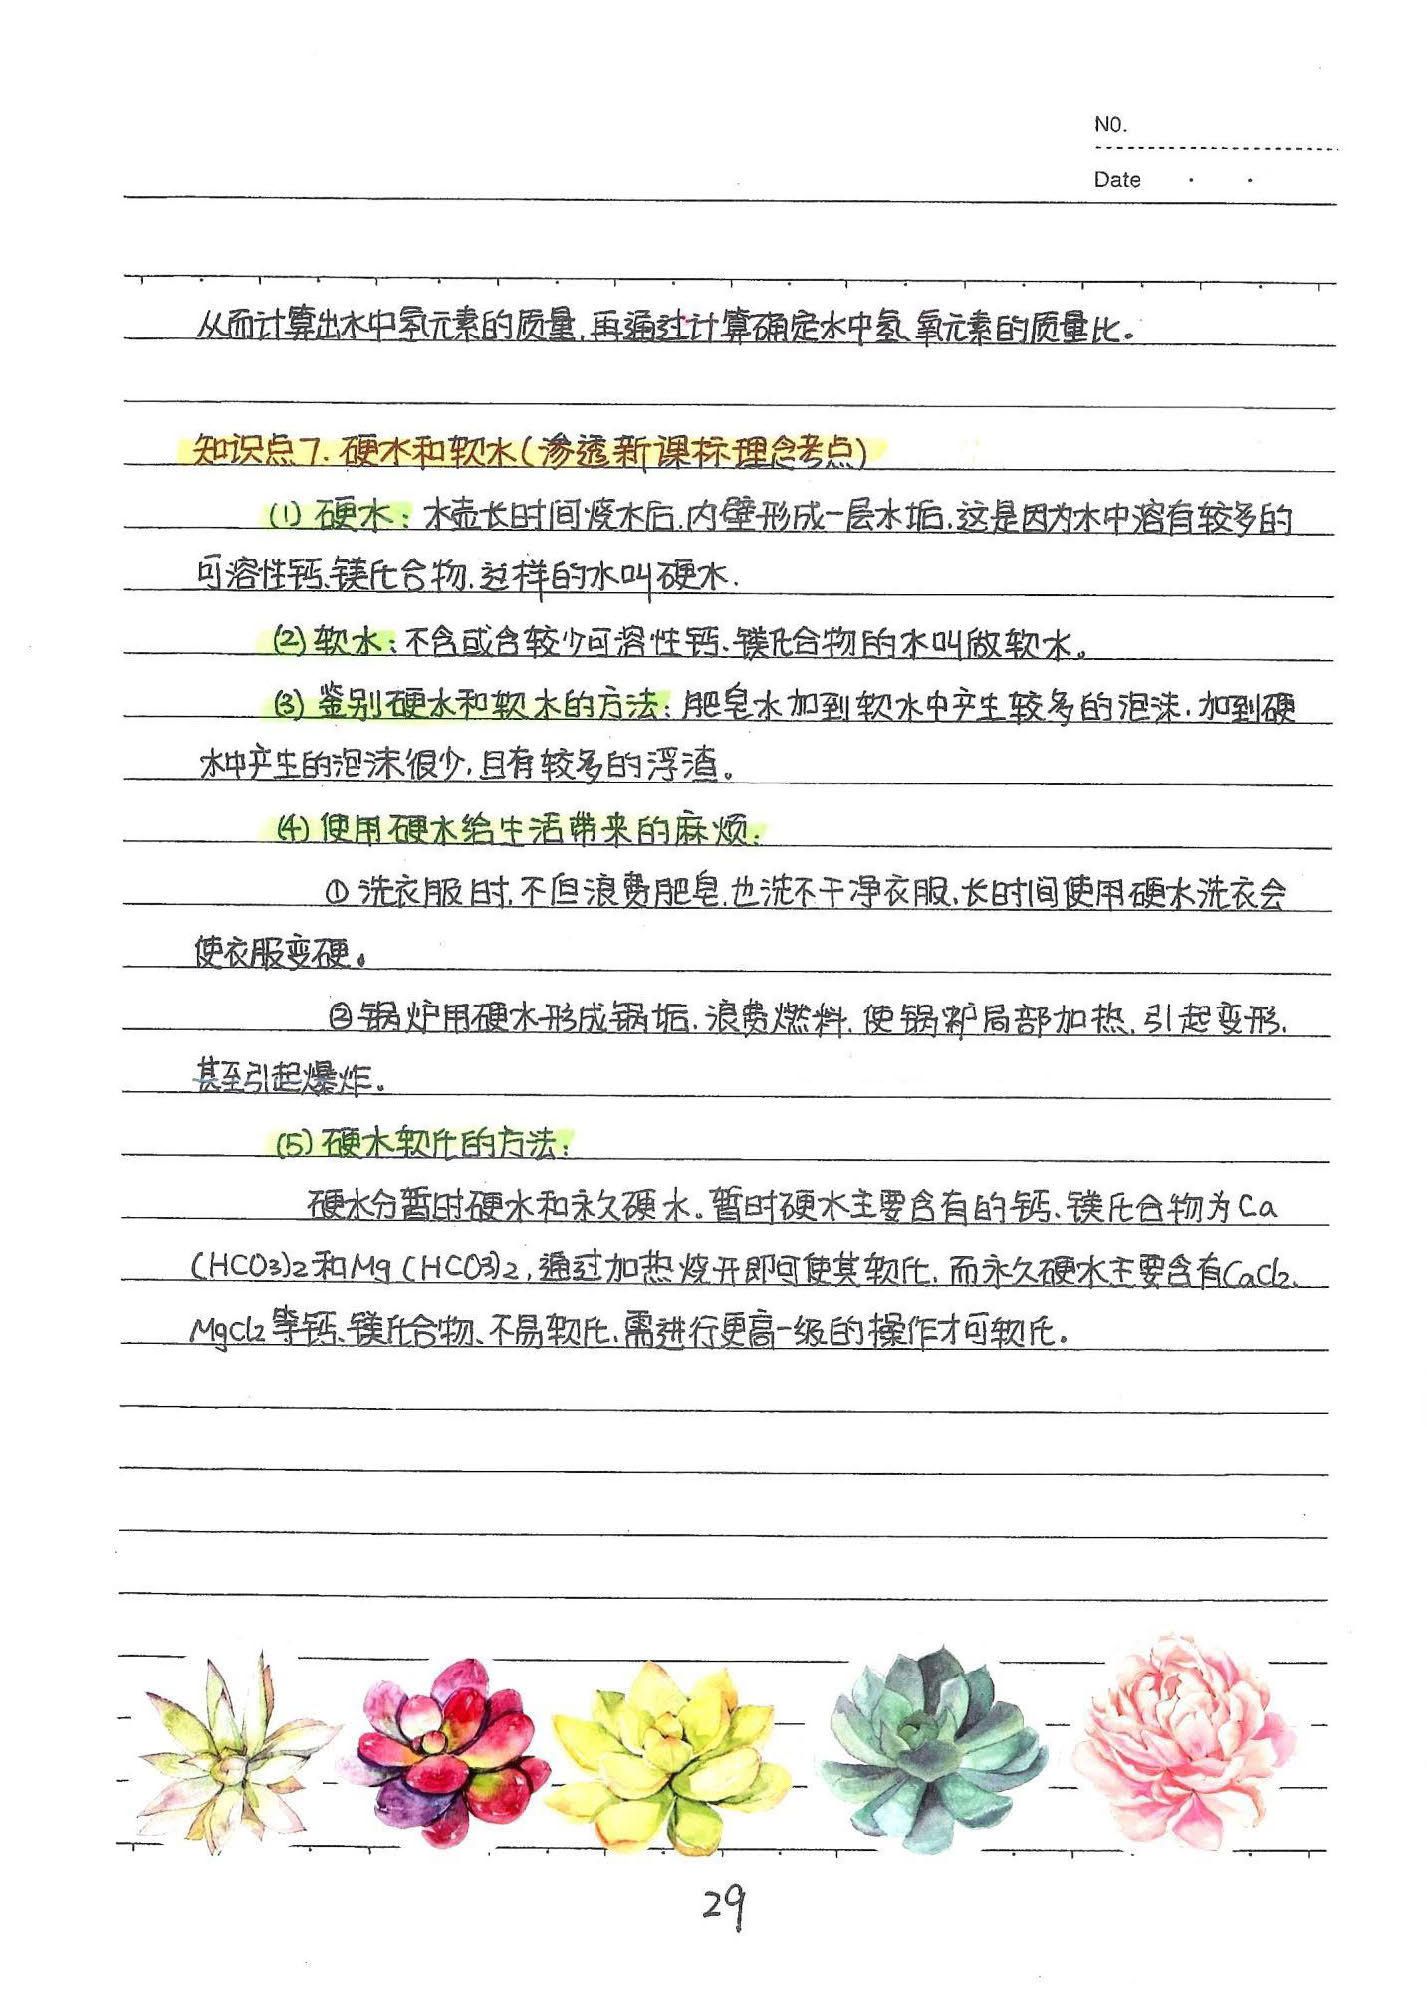 NO.
Date
从而计算出水中氢元素的质量,再通过计算确定水中氢、氧元素的质量比。
知识点7.硬水和软水(渗透新课标理念考点)
(1)硬水:水壶长时间烧水后,内壁形成一层水垢,这是因为水中溶有较多的
可溶性钙、镁化合物,这样的水叫硬水.
(2)软水:不含或含较少可溶性钙、镁化合物的水叫做软水。
(3)鉴别硬水和软水的方法:肥皂水加到软水中产生较多的泡沫,加到硬
水中产生的泡沫很少,且有较多的浮渣。
(4)使用硬水给生活带来的麻烦:
①洗衣服时,不但浪费肥皂,也洗不干净衣服,长时间使用硬水洗衣会
使衣服变硬。
②锅炉用硬水形成锅垢,浪费燃料,使锅炉局部加热,引起变形,
甚至引起爆炸。
(5)硬水软化的方法:
硬水分暂时硬水和永久硬水。暂时硬水主要含有的钙、镁化合物为Ca
(HCO3)2和Mg(HCO3)2,通过加热烧开即可使其软化,而永久硬水主要含有CaCl2、
MgCl2等钙、镁化合物、不易软化,需进行更高一级的操作才可软化。
29